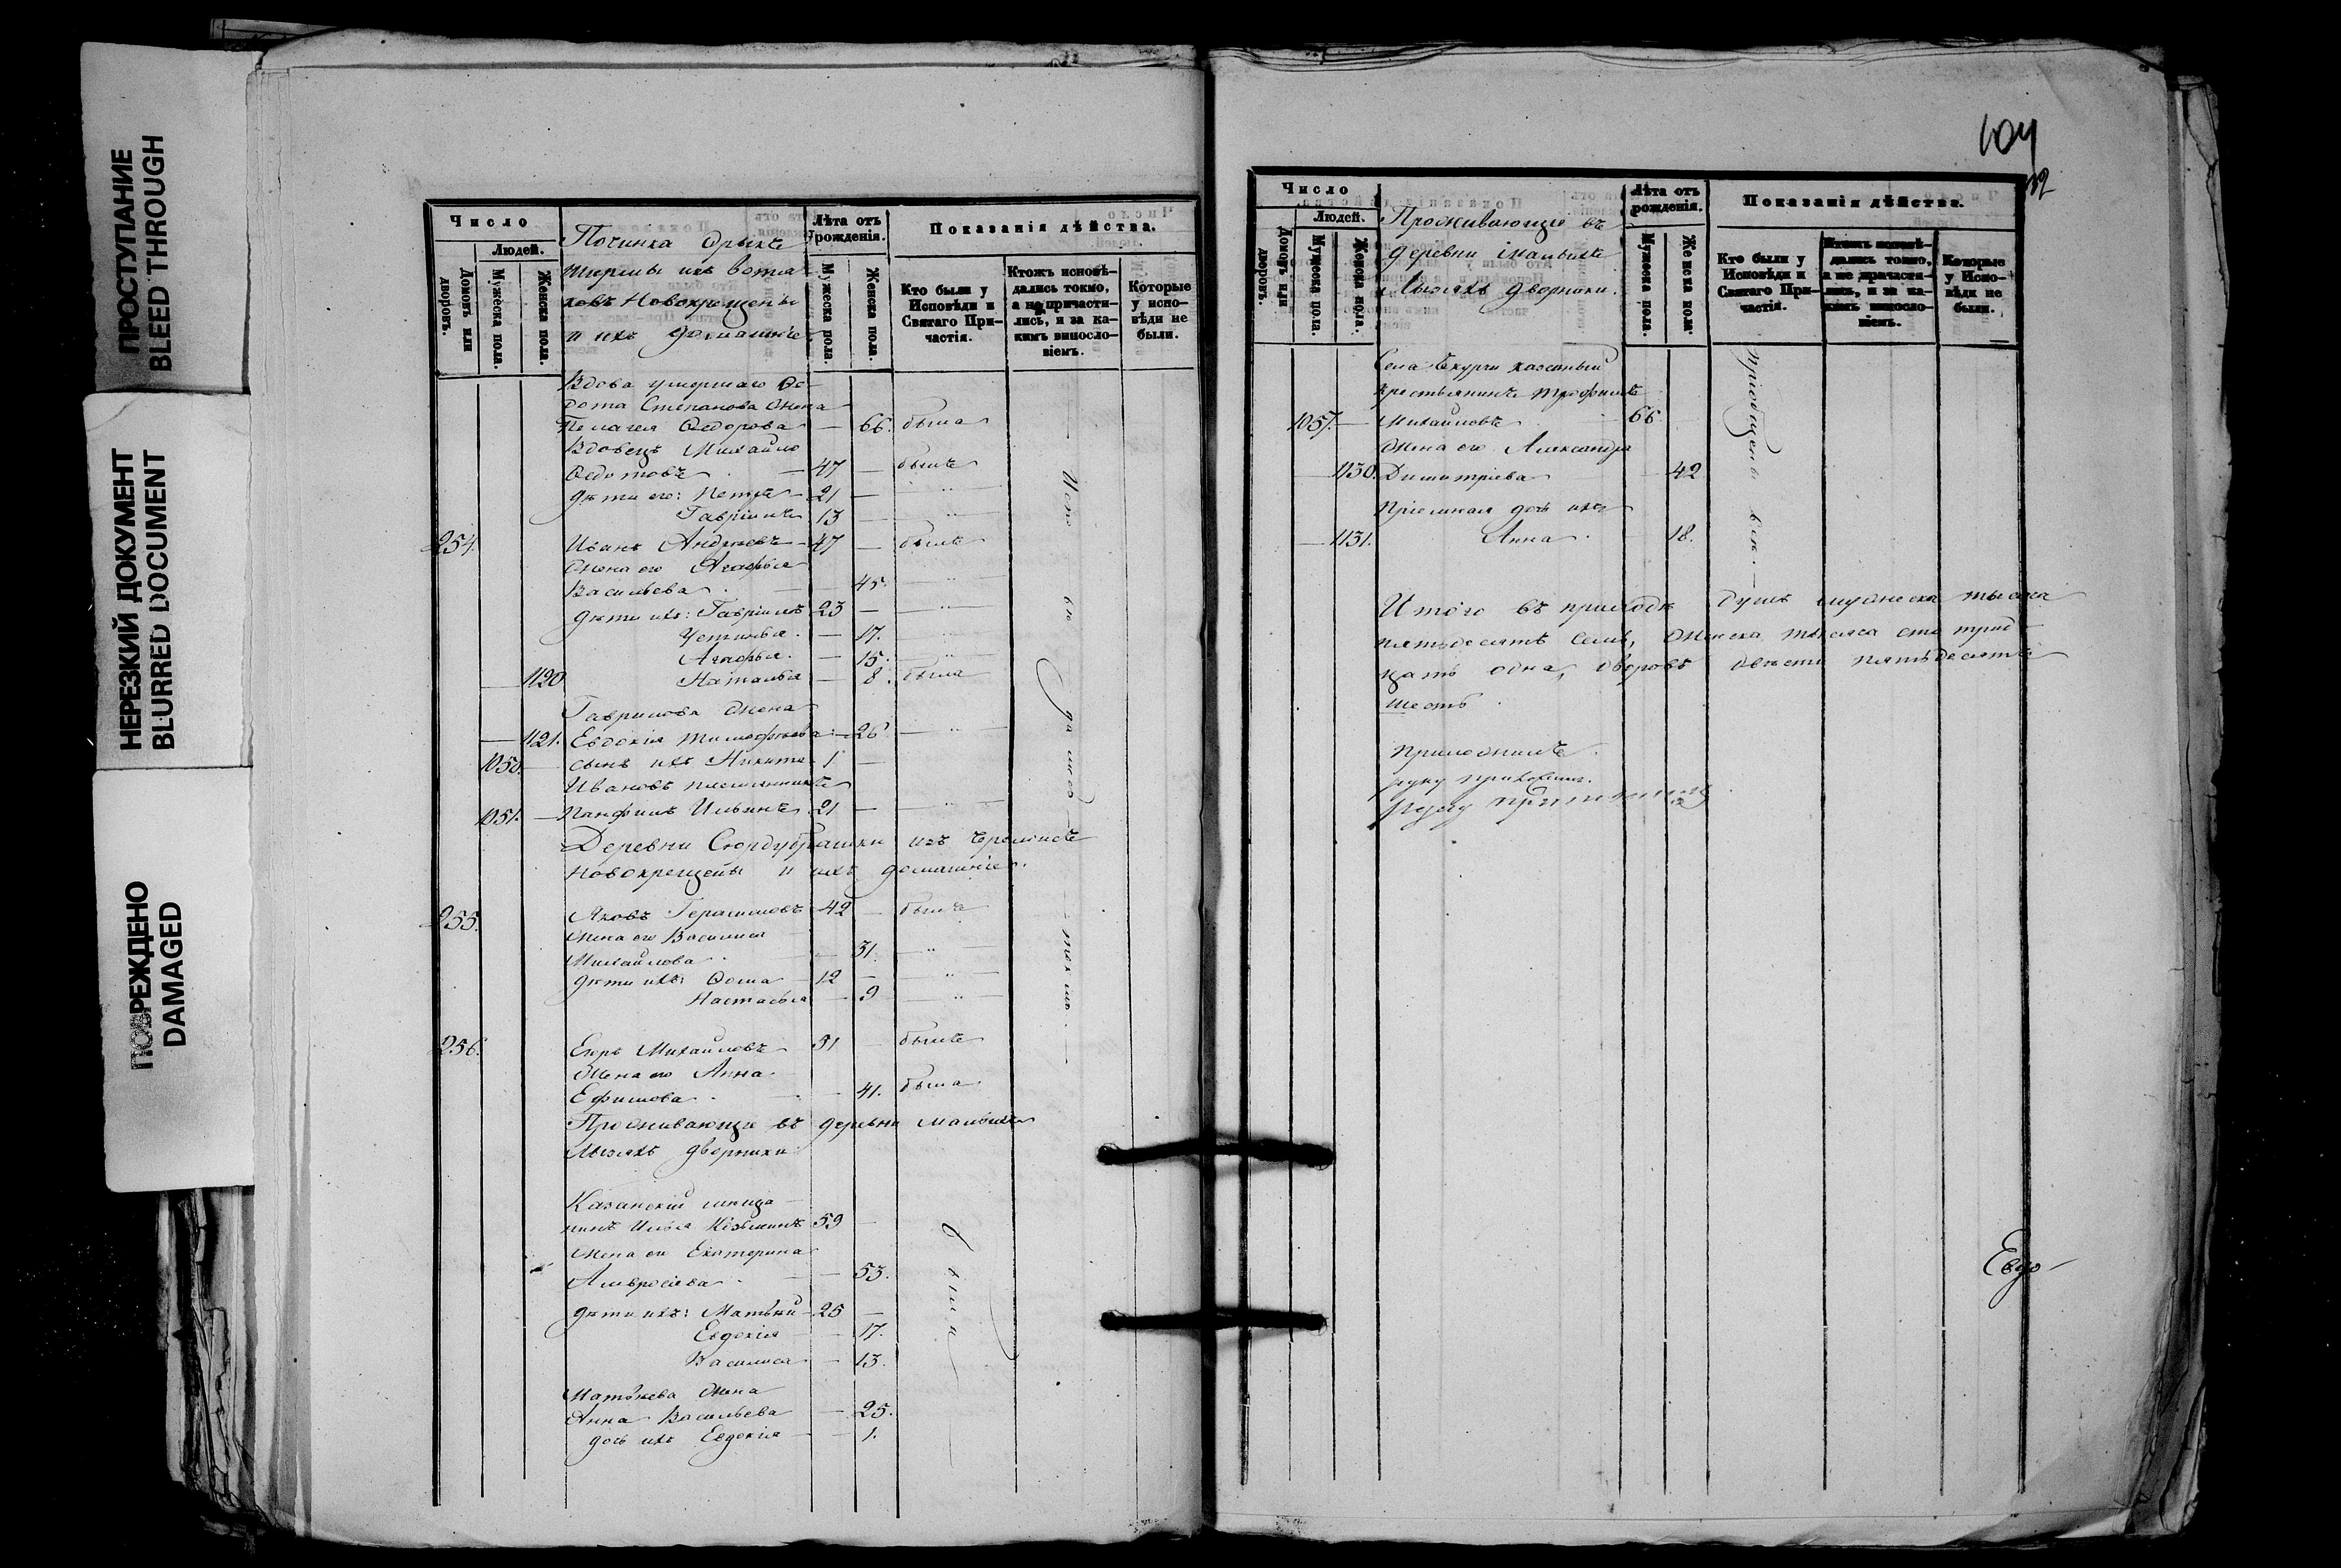 ПРОСТУПАНИЕ
BLEED THROUGH
НЕРЕЗКИЙ ДОКУМЕНТ
BLURRED DOCUMENT
ПОВРЕЖДЕНО
DAMAGED
Число
Людей.
Домовъ или дворовъ.
Мужеска пола.
Женска пола.
Починка
изъ вотя
ковъ Новокрещены
и ихъ домашніе
Лѣта отъ рожденія.
Мужеска пола.
Женска пола.
Показанія дѣйства.
Кто были у Исповѣди и Святаго Причастія.
Ктожъ исповѣ-
дались токмо,
а не причасти-
лись, и за ка-
кимъ винносло-
віемъ.
Которые
у испо-
вѣди не
были.
Вдова умершаго Ѳе-
дота Степанова жена
Пелагея Ѳедорова — 66. была
Вдовецъ Михайло
Ѳедотовъ — 47 — былъ
дѣти его: Петръ — 21 — "
Гавріилъ 13 — "
254. Иванъ Андреевъ — 47 — былъ
Жена его Агафья
Васильева — 45. — "
дѣти ихъ: Гавріилъ 23 — "
Устинья — 17. "
Агафья — 15. "
1120 Наталья — 8. была
Гаврилова жена
1121. Евдокія Тимофеева — 26 "
1050. сынъ ихъ Никита 1 —
Ивановъ племянникъ
1051. Панфилъ Ильинъ 21 — "
Деревни изъ Черемисъ
новокрещены и ихъ домашніе.
255. Яковъ Герасимовъ 42 — былъ
Жена его Василиса
Михайлова — 31. "
дѣти ихъ: Ѳома 12 — "
Настасья — 9 "
256. Егоръ Михайловъ 51 былъ
Жена его Анна
Ефимова — 41. была
Проживающіе въ деревни Малыхъ
Лызяхъ дворники
Казанскій мѣща-
нинъ Илья Козминъ 59 —
Жена его Екатерина
Амвросіева — 53.
дѣти ихъ: Матвѣй 25 —
Евдокія — 17.
Василиса — 13.
Матвѣева жена
Анна Васильева — 25.
дочь ихъ Евдокія — 1.
были
104
Число
Людей.
Домовъ или дворовъ.
Мужеска пола.
Женска пола.
Проживающіе въ
деревни Малыхъ
Лызяхъ дворники.
Лѣта отъ рожденія.
Мужеска пола.
Женска пола.
Показанія дѣйства.
Кто были у
Исповѣди и
Святаго При-
частія.
Ктожъ исповѣ-
дались токмо,
а не причасти-
лись, и за ка-
кимъ винносло-
віемъ.
Которые
у Испо-
вѣди не
были.
Села казенный
крестьянинъ Трофимъ
1057. — Михайловъ — 66
Жена его Александра
1130. Димитріева 42
Пріемная дочь ихъ
1131. Анна 18.
Итого въ приходѣ душъ мужеска тысяча
пятьдесятъ семь, женска тысяча сто трид-
цать одна, дворовъ двѣсти пятьдесятъ
шесть.
руку приложилъ.
руку приложилъ
Евдо-